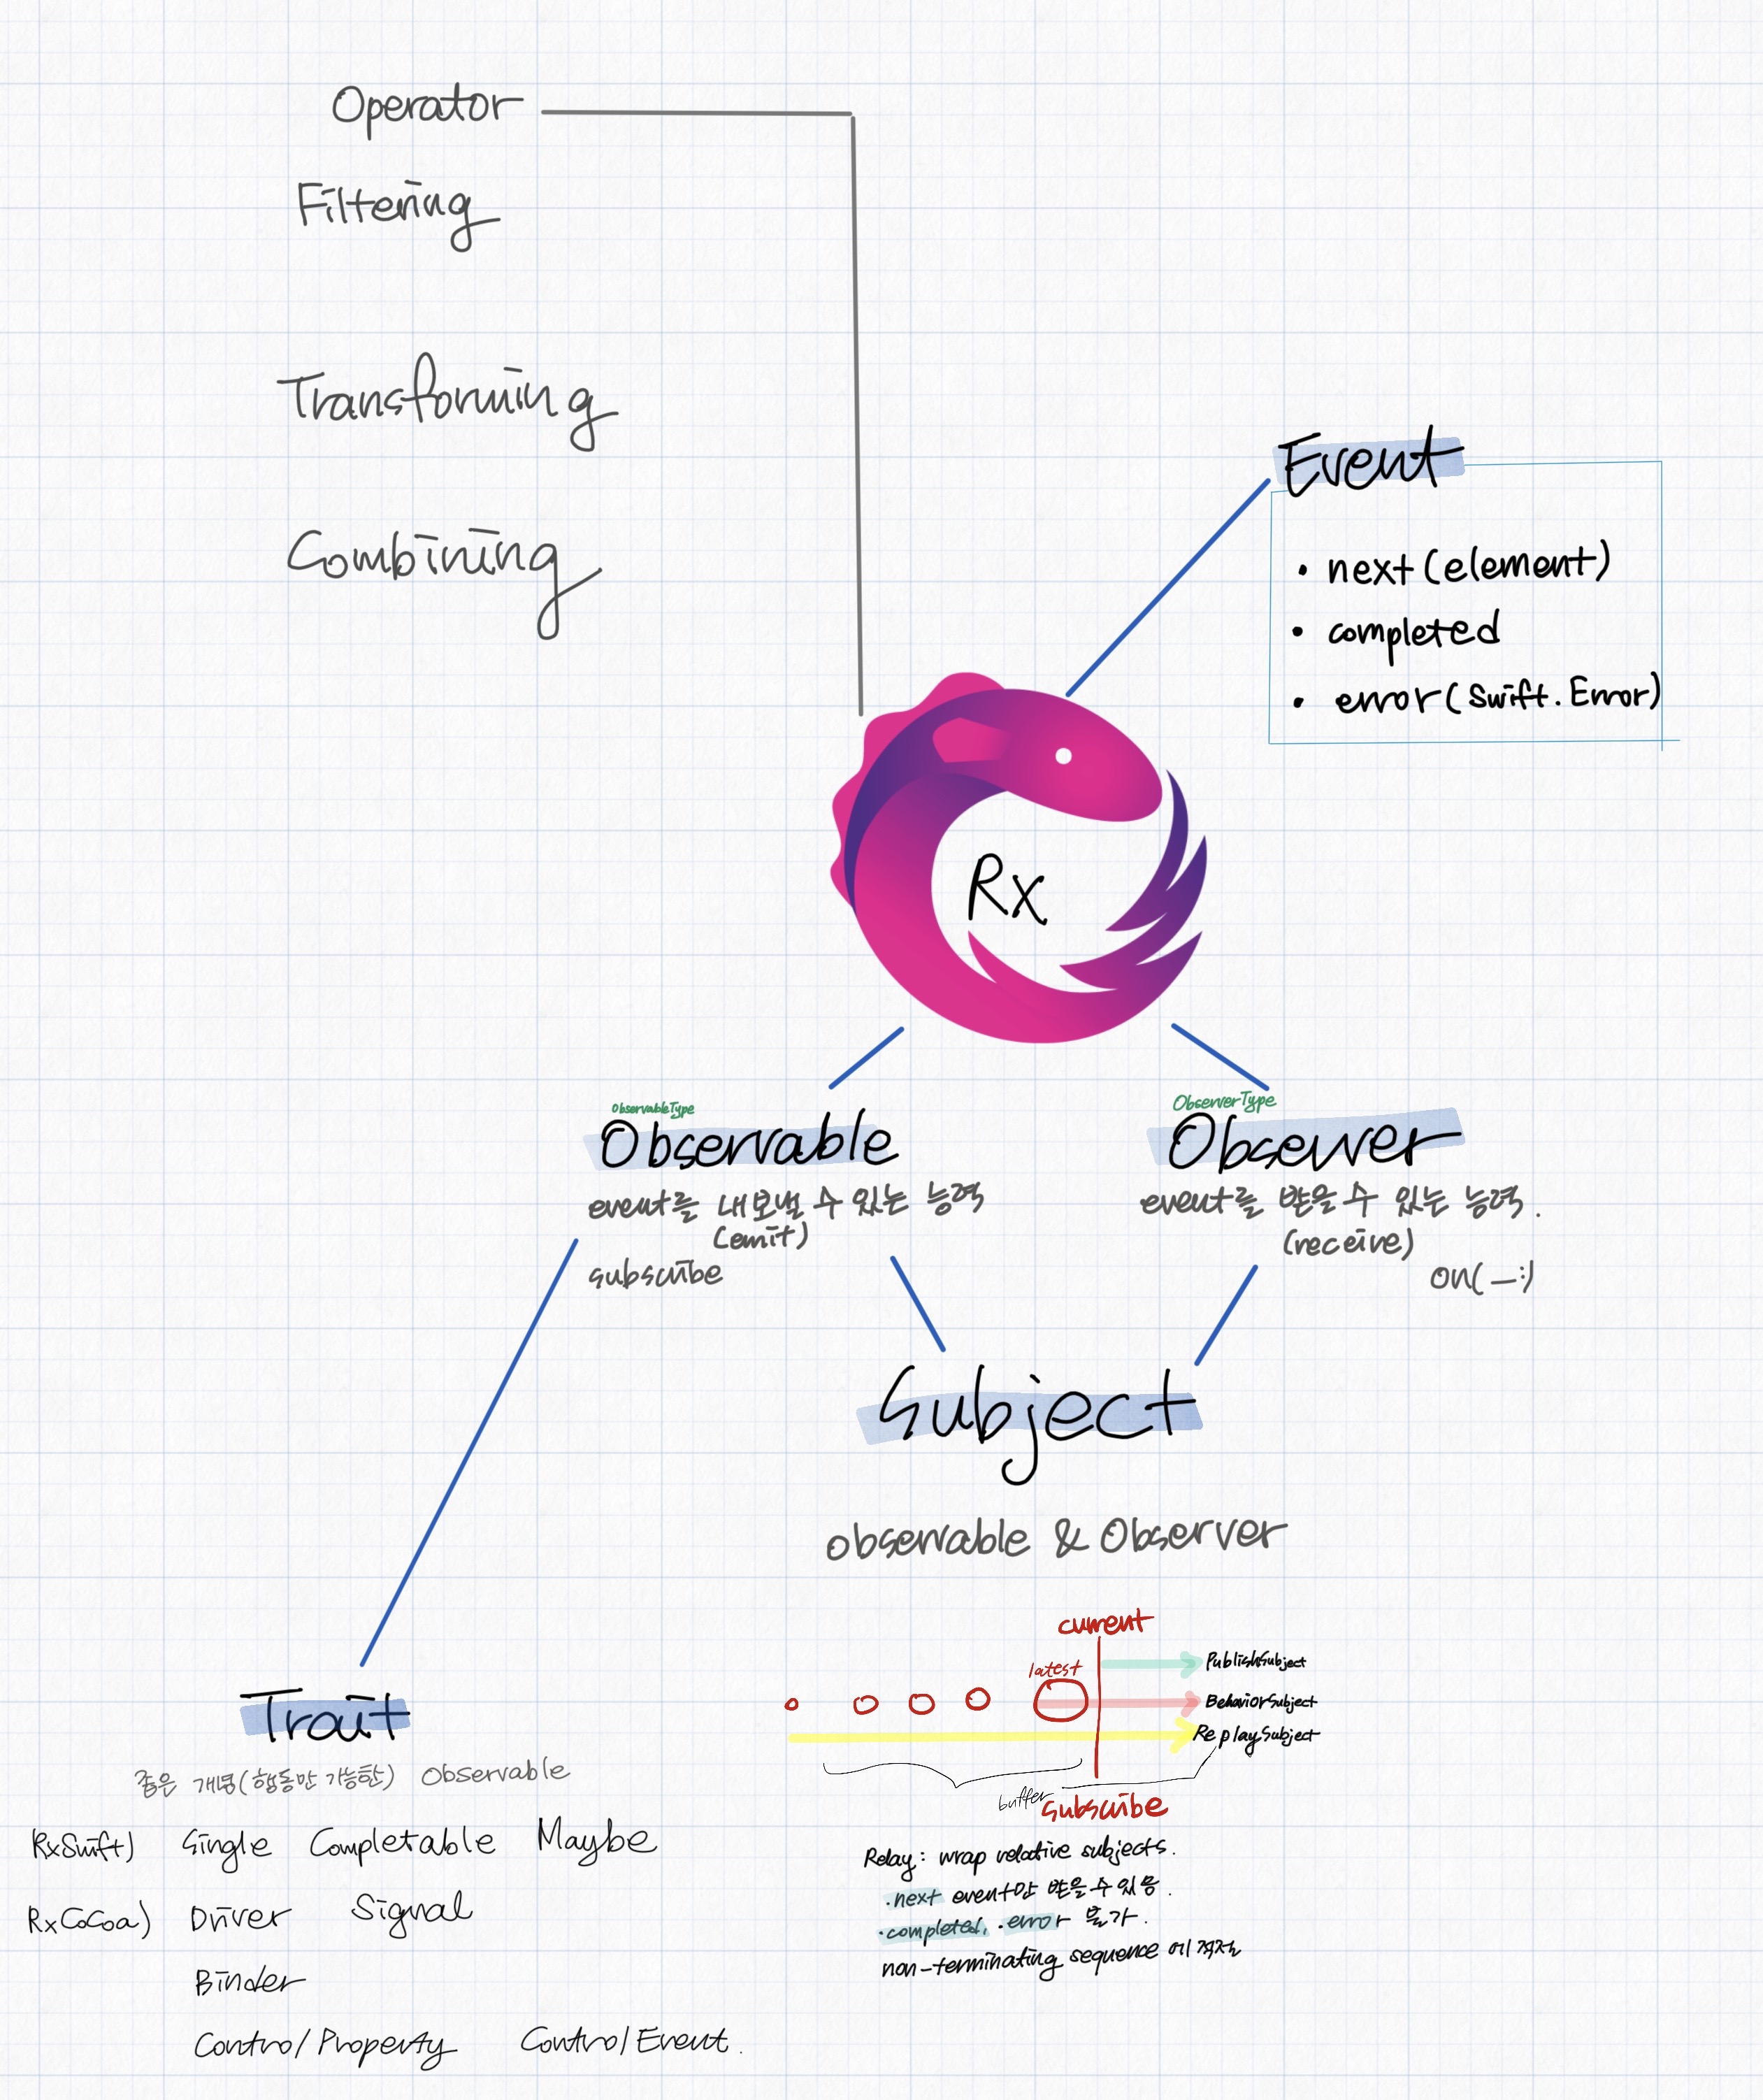 Operator
Filtering
Transforming
Combining
Event
• next(element)
• completed
• error(Swift.Error)
Rx
ObservableType
Observable
event를 내보낼 수 있는 능력
(emit)
subscribe
ObserverType
Observer
event를 받을 수 있는 능력.
(receive)
on(_:)
Subject
observable & Observer
current
latest
PublishSubject
BehaviorSubject
ReplaySubject
buffer
subscribe
Relay: wrap relative subjects.
.next event만 받을 수 있음.
.completed, .error 불가.
non-terminating sequence에 적절
Trait
좁은 개념(행동만 가능한) Observable
RxSwift) Single Completable Maybe
RxCoCoa) Driver Signal
Binder
ControlProperty ControlEvent.